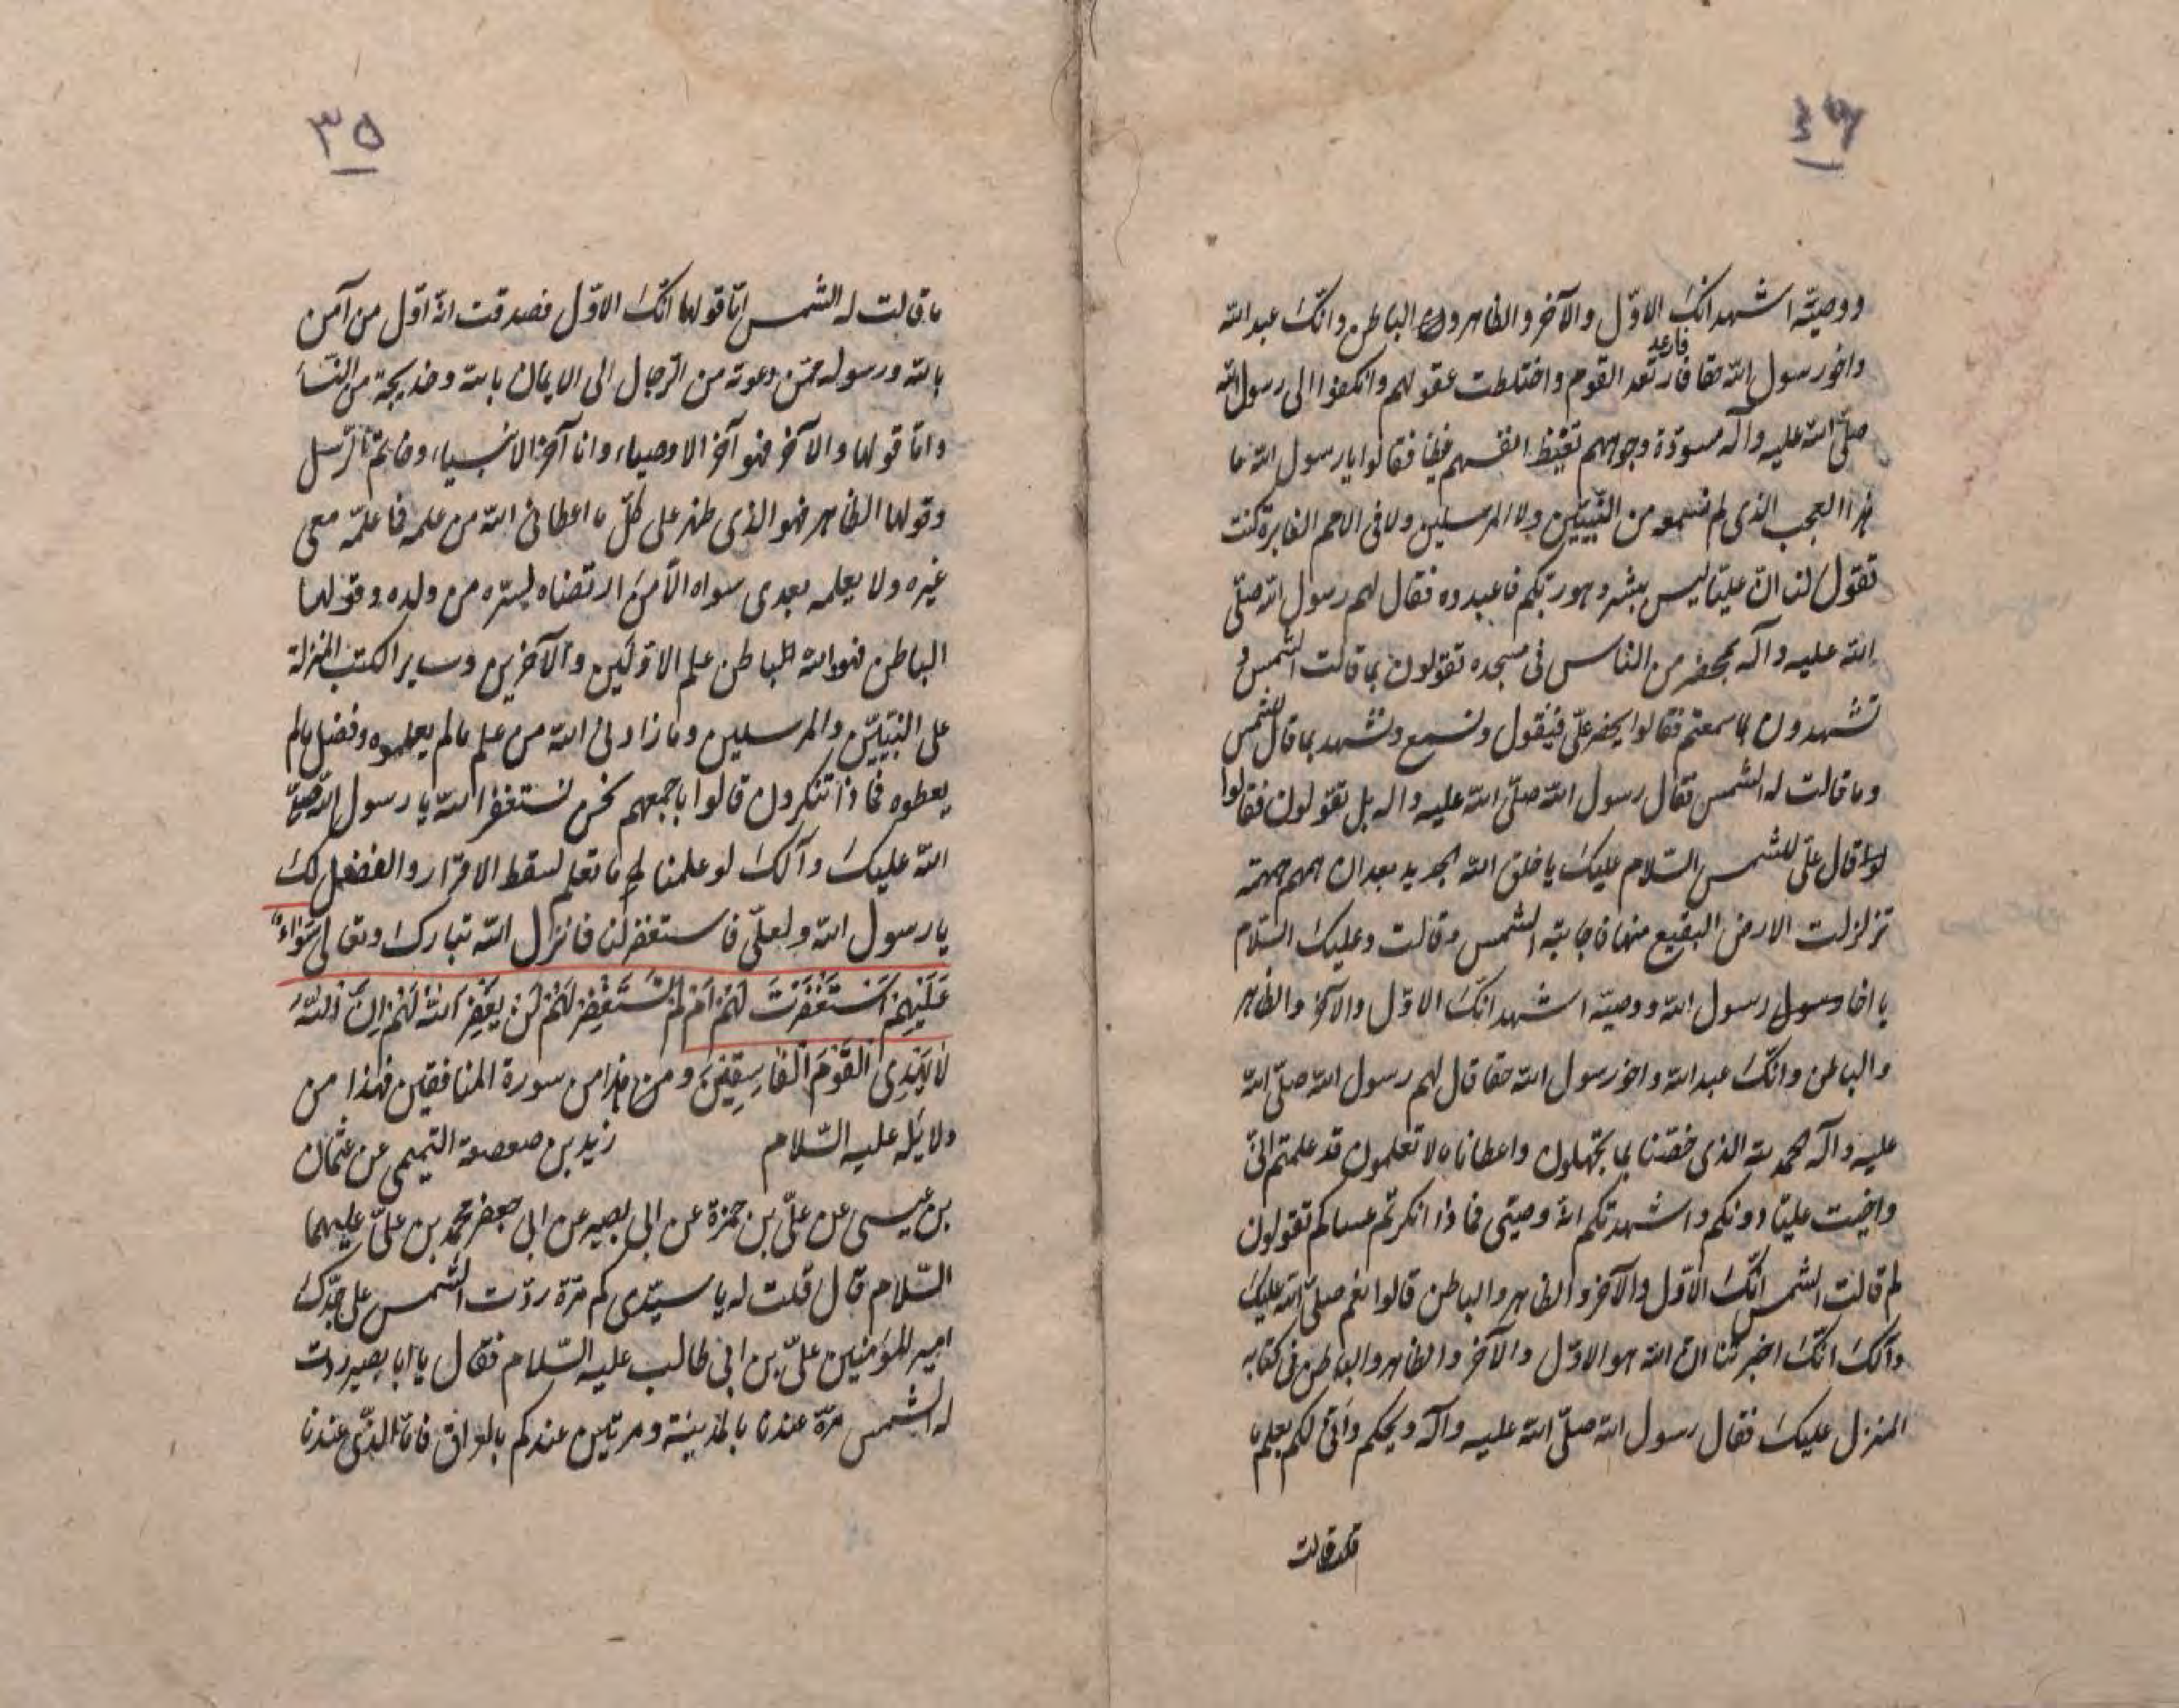 ٣٤
ووصيّه اشهد انّك الاوّل والآخر والظاهر والباطن وانّك عبد الله
فارعد
واخو رسول الله حقا فارتعد القوم واختلطت عقولهم وانكفوا الى رسول الله
صلّى الله عليه وآله مسودّة وجوههم تغيظ انفسهم غيظا فقالوا يا رسول الله ما
هذا العجب الذى لم نسمعه من النّبيّين ولا المرسلين ولا فى الامم الغابرة كنت
تقول لنا انّ عليّا ليس ببشر وهو ربّكم فاعبدوه فقال لهم رسول الله صلّى
الله عليه وآله بمحضر من الناس فى مسجده تقولون بما قالت الشمس و
تشهدون بما سمعتم فقالوا يحضر علىّ فيقول ونسمع ونشهد بما قال للشمس
وما قالت له الشمس فقال رسول الله صلّى الله عليه واله بل تقولون فقالوا
قال علىّ للشمس السّلام عليك يا خلق الله الجديد بعد ان همهم همهمة
تزلزلت الارض البقيع منها فاجابته الشمس وقالت وعليك السّلام
يا اخا رسول الله ووصيّه اشهد انّك الاوّل والآخر والظاهر
والباطن وانّك عبد الله واخو رسول الله حقا قال لهم رسول الله صلّى الله
عليه وآله الحمد لله الذى خصّنا بما تجهلون واعطانا ما لا تعلمون قد علمتم انّى
واخيت عليّا دونكم واشهدتكم انّه وصيّى فماذا انكرتم عساكم تقولون
لم قالت الشمس انّك الاوّل والآخر والظاهر والباطن قالوا نعم صلّى الله عليك
وآلك انّك اخبرتنا انّ الله هو الاوّل والآخر والظاهر والباطن فى كتابه
المنزل عليك فقال رسول الله صلّى الله عليه وآله ويحكم وانّى لكم بعلم ما
٣٥
ما قالت له الشمس امّا قولها انّك الاوّل فصدقت انّه اوّل من آمن
بالله ورسوله ممّن دعوته من الرّجال الى الايمان بالله وخديجة من النّسا
وامّا قولها والآخر فهو آخر الاوصياء وانا آخر الانبياء وخاتم الرّسل
وقولها الظاهر فهو الذى ظهر على كلّ ما اعطانى الله من علمه فما علمه معى
غيره ولا يعلمه بعدى سواه الّا من ارتضاه لسرّه من ولده وقولها
الباطن فهو والله الباطن علم الاوّلين والآخرين وساير الكتب المنزلة
على النّبيّين والمرسلين وما زادنى الله من علم ما لم يعلموه وفضل ما لم
يعطوه فماذا تنكرون قالوا باجمعهم نحن نستغفر الله يا رسول الله صلّى
الله عليك وآلك لو علمنا ما تعلم لسقط الاقرار والفضل لك
يا رسول الله ولعلىّ فاستغفر لنا فانزل الله تبارك وتعالى سَوَاءٌ
عَلَيْهِمْ اَسْتَغْفَرْتَ لَهُمْ اَمْ لَمْ تَسْتَغْفِرْ لَهُمْ لَنْ يَغْفِرَ اللهُ لَهُمْ اِنَّ اللهَ
لَا يَهْدِى الْقَوْمَ الْفَاسِقِيْنَ وهذا من سورة المنافقين فهذا من
دلايله عليه السّلام زيد بن صعصعة التميمى عن عثمان
بن عيسى عن علىّ بن حمزة عن ابى بصير عن ابى جعفر محمّد بن علىّ عليهما
السّلام قال قلت له يا سيّدى كم مرّة ردّت الشمس على جدّك
امير المؤمنين علىّ بن ابى طالب عليه السّلام فقال يا ابا بصير ردّت
له الشمس مرّة عندنا بالمدينة ومرتين عندكم بالعراق فامّا الذى عندنا